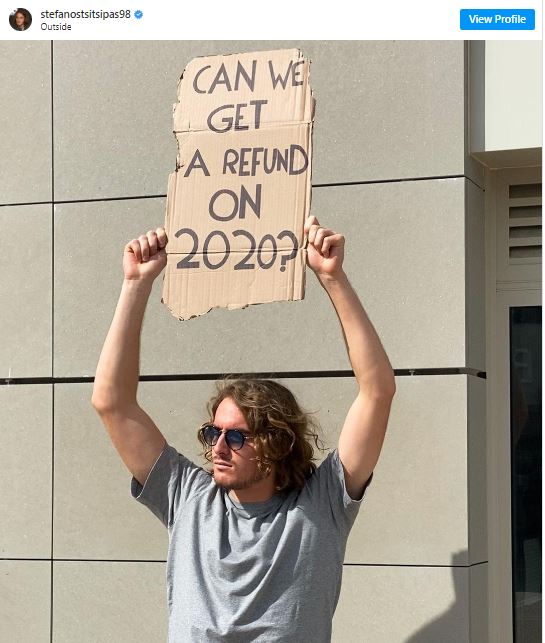 stefanostsitsipas98
Outside
View Profile
CAN WE
GET
A REFUND
ON
2020?